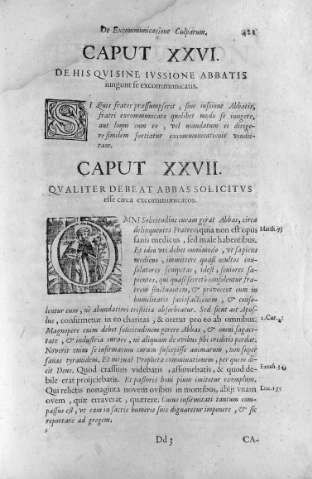 De Excommunicatione Culparum. 421
CAPUT XXVI.
DE HIS QUI SINE IVSSIONE ABBATIS
iungunt se excommunicatis.
SI Quis frater præsumpserit, sine iussione Abbatis,
fratri excommunicato quolibet modo se iungere,
aut loqui cum eo, vel mandatum ei dirige-
re similem sortiatur excommunicationis vindi-
ctam.
CAPUT XXVII.
QVALITER DEBEAT ABBAS SOLICITVS
esse circa excommunicatos.
OMNI Solicitudine curam gerat Abbas, circa
delinquentes Fratres, quia non est opus Matth. 9
sanis medicus, sed male habentibus.
Et ideo uti debet omni modo, vt sapiens
medicus, immittere quasi occultos con-
solatores sempectas, idest, seniores sa-
pientes, qui quasi secretò consolentur fra-
trem fluctuantem, & provocent eum in
humilitatis satisfactionem, & conso-
lentur eum, ne abundantiori tristitia absorbeatur. Sed sicut ait Apos-
lus, confirmetur in eo charitas, & oretur pro eo ab omnibus. 2. Cor.
Magnopere enim debet solicitudinem gerere Abbas, & omni sagaci-
tate, & industria currere, ne aliquam de ovibus sibi creditis perdat.
Noverit enim se infirmarum curam suscepisse animarum, non super
sanas tyrannidem. Et metuat Prophetæ comminationem, per quem di-
cit Deus. Quod crassum videbatis, assumebatis, & quod de-
bile erat projiciebatis. Et pastoris boni pium imitetur exemplum,
Qui relictis nonaginta novem ovibus in montibus, abiit vnam Luc. 15
ovem, quæ erraverat, quærere. Cuius infirmitati tantum com-
passus est, vt eam in sacris humeris suis dignaretur imponere, & sic
reportare ad gregem.
Dd 3 CA-